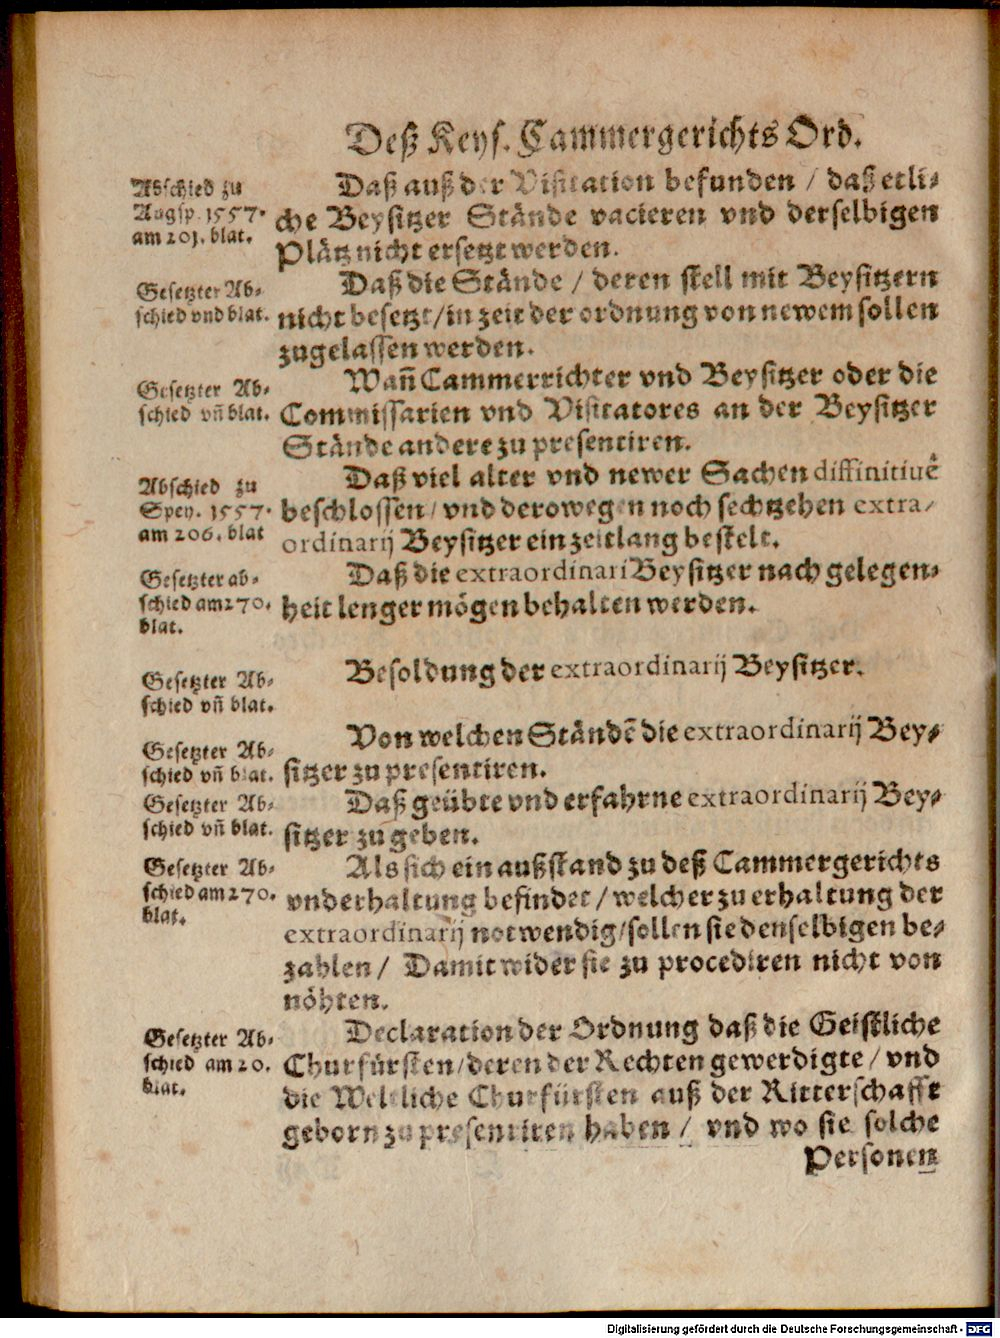 Deß Keys. Cammergerichts Ord.
Abschied zu
Augsp. 1557.
am 201. blat.
Daß auß der Visitation befunden / daß etli-
che Beysitzer Stände vacieren vnd derselbigen
Plätz nicht ersetzt werden.
Gesetzter Ab-
schied vnd blat.
Daß die Stände / deren stell mit Beysitzern
nicht besetzt / in zeit der ordnung von newem sollen
zugelassen werden.
Gesetzter Ab-
schied vñ blat.
Wañ Cammerrichter vnd Beysitzer oder die
Commissarien vnd Visitatores an der Beysitzer
Stände andere zu presentiren.
Abschied zu
Spey. 1557.
am 206. blat
Daß viel alter vnd newer Sachen diffinitiuè
beschlossen / vnd derowegen noch sechtzehen extra-
ordinarij Beysitzer ein zeitlang bestelt.
Gesetzter ab-
schied am 270.
blat.
Daß die extraordinari Beysitzer nach gelegen-
heit lenger mögen behalten werden.
Gesetzter Ab-
schied vñ blat.
Besoldung der extraordinarij Beysitzer.
Gesetzter Ab-
schied vñ blat.
Von welchen Ständē die extraordinarij Bey-
sitzer zu presentiren.
Gesetzter Ab-
schied vñ blat.
Daß geübte vnd erfahrne extraordinarij Bey-
sitzer zu geben.
Gesetzter Ab-
schied am 270.
blat.
Als sich ein außstand zu deß Cammergerichts
vnderhaltung befindet / welcher zu erhaltung der
extraordinarij notwendig / sollen sie denselbigen be-
zahlen / Damit wider sie zu procediren nicht von
nöhten.
Gesetzter Ab-
schied am 20.
blat.
Declaration der Ordnung daß die Geistliche
Churfürsten / deren der Rechten gewerdigte / vnd
die Weltliche Churfürsten auß der Ritterschafft
geborn zu presentiren haben / vnd wo sie solche
Personen
Digitalisierung gefördert durch die Deutsche Forschungsgemeinschaft - DFG